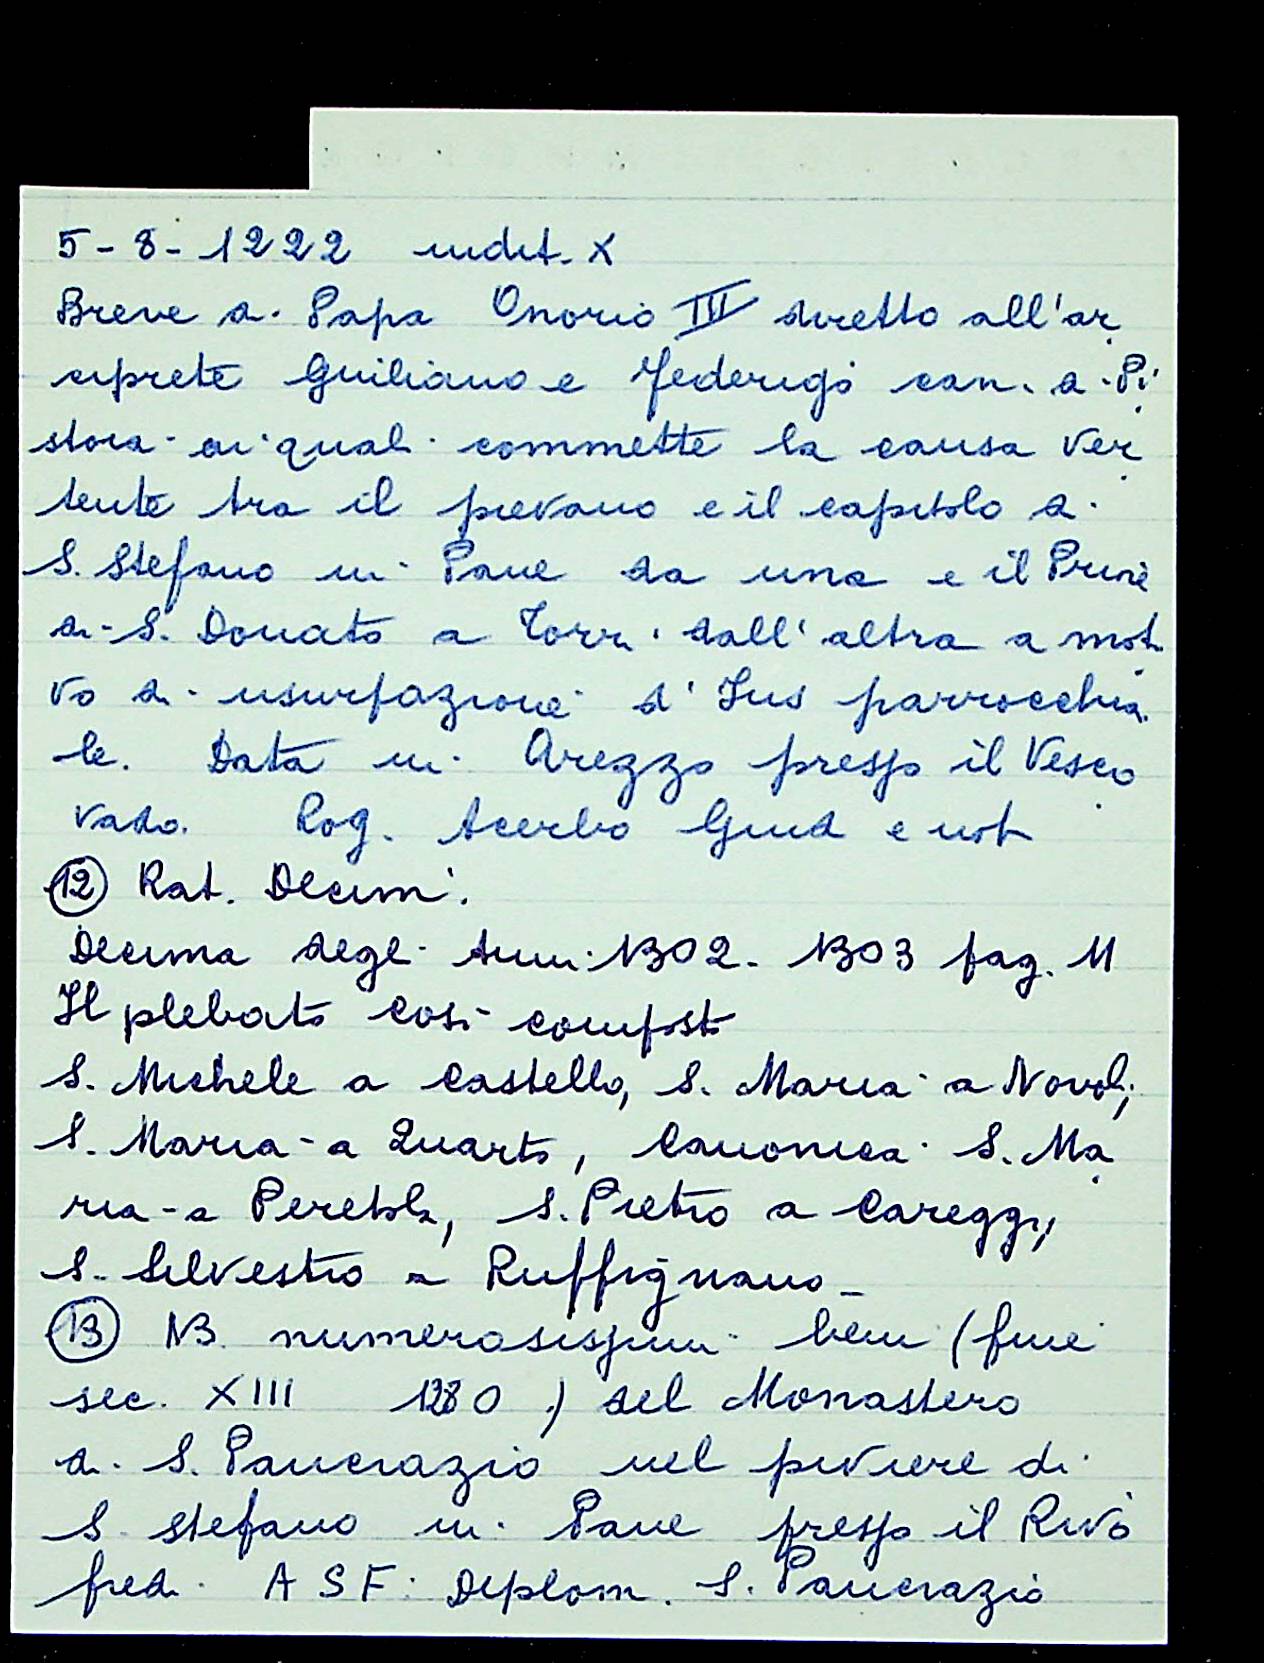 5-8-1222 indit. X
Breve di Papa Onorio III diretto all'ar
ciprete Guiliano e Federigo can. di Pi
stoia ai quali commette la causa ver
tente tra il pievano e il capitolo di
S. Stefano in Pane da una e il Priore
di S. Donato a Torri dall'altra a moti
vo di usurpazione d'Jus parrocchia
le. Data in Arezzo presso il Vesco
vado. Rog. Acerbo Giud e not
(12) Rat. Decim.
Decima degli Anni 1302-1303 pag. 11
Il plebato così composto
S. Michele a Castello, S. Maria a Novoli,
S. Maria a Quarto, Canonica S. Ma
ria a Peretola, S. Pietro a Careggi,
S. Silvestro a Ruffignano-
(13) NB numerosissimi beni (fine
sec. XIII 1280) del Monastero
di S. Pancrazio nel piviere di
S. Stefano in Pane presso il Rivo
fredi. ASF: Diplom. S. Pancrazio